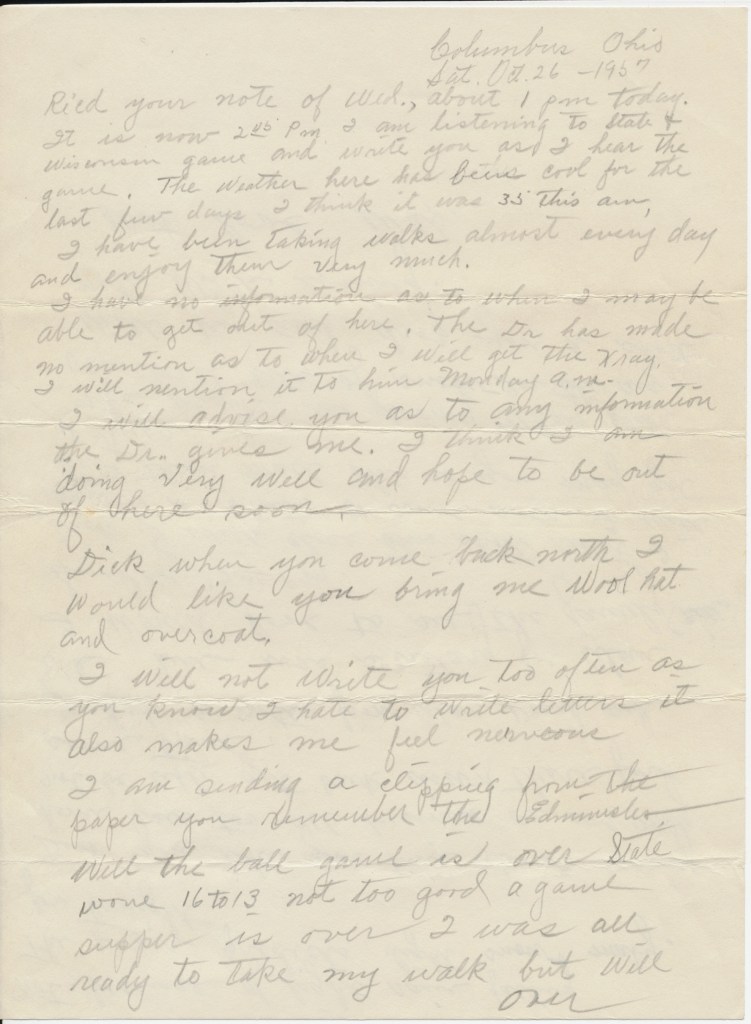 Columbus Ohio
Sat. Oct. 26 - 1957
Rc'd your note of Wed., about 1 pm today.
It is now 2 45 Pm I am listening to State &
Wisconsin game and write you as I hear the
game. The weather here has been cool for the
last few days I think it was 35 this am,
I have been taking walks almost every day
and enjoy them very much.
I have no information as to when I may be
able to get out of here. The Dr has made
no mention as to when I will get the Xray.
I will mention it to him Monday a.m.
I will advise you as to any information
the Dr. gives me. I think I am
doing very well and hope to be out
of here soon.
Dick when you come back north I
would like you bring me wool hat
and overcoat.
I will not write you too often as
you know I hate to write letters it
also makes me feel nerveous
I am sending a clipping from the
paper you remember the
Well the ball game is over State
wone 16 to 13 not too good a game
supper is over I was all
ready to take my walk but will
over